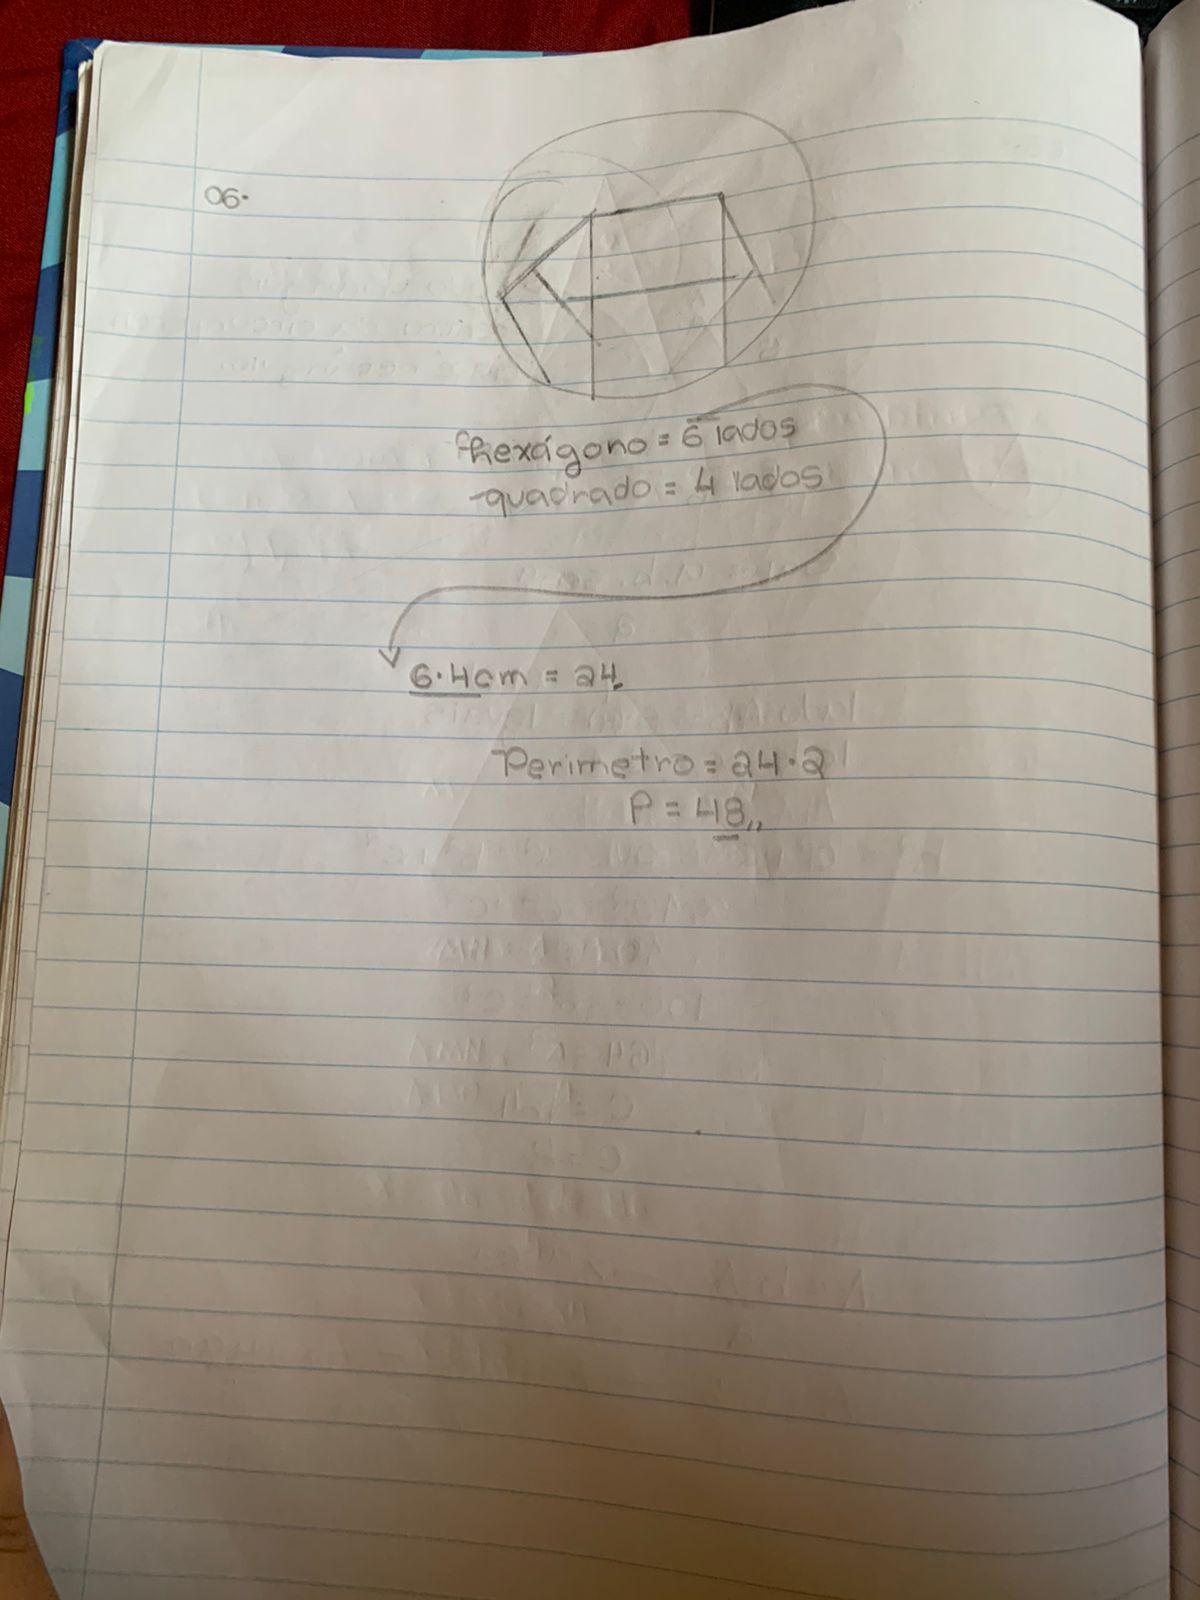 06.
hexágono = 6 lados
-quadrado = 4 lados
6.4cm = 24.
Perimetro = 24.2
P = 48,,